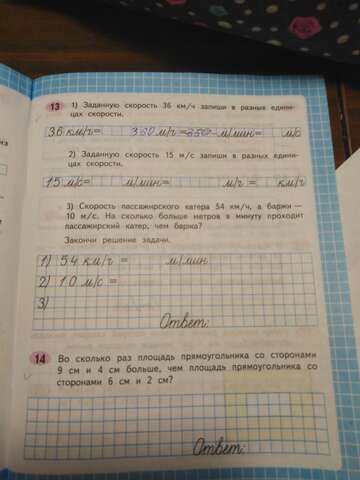 13 1) Заданную скорость 36 км/ч запиши в разных едини-
цах скорости.
36 км/ч= 360 м/ч= м/мин= м/с
2) Заданную скорость 15 м/с запиши в разных едини-
цах скорости.
15 м/с= м/мин= м/ч = км/ч
3) Скорость пассажирского катера 54 км/ч, а баржи —
10 м/с. На сколько больше метров в минуту проходит
пассажирский катер, чем баржа?
Закончи решение задачи.
1) 54 км/ч = м/мин
2) 10 м/с =
3)
Ответ:
14 Во сколько раз площадь прямоугольника со сторонами
9 см и 4 см больше, чем площадь прямоугольника со
сторонами 6 см и 2 см?
Ответ: